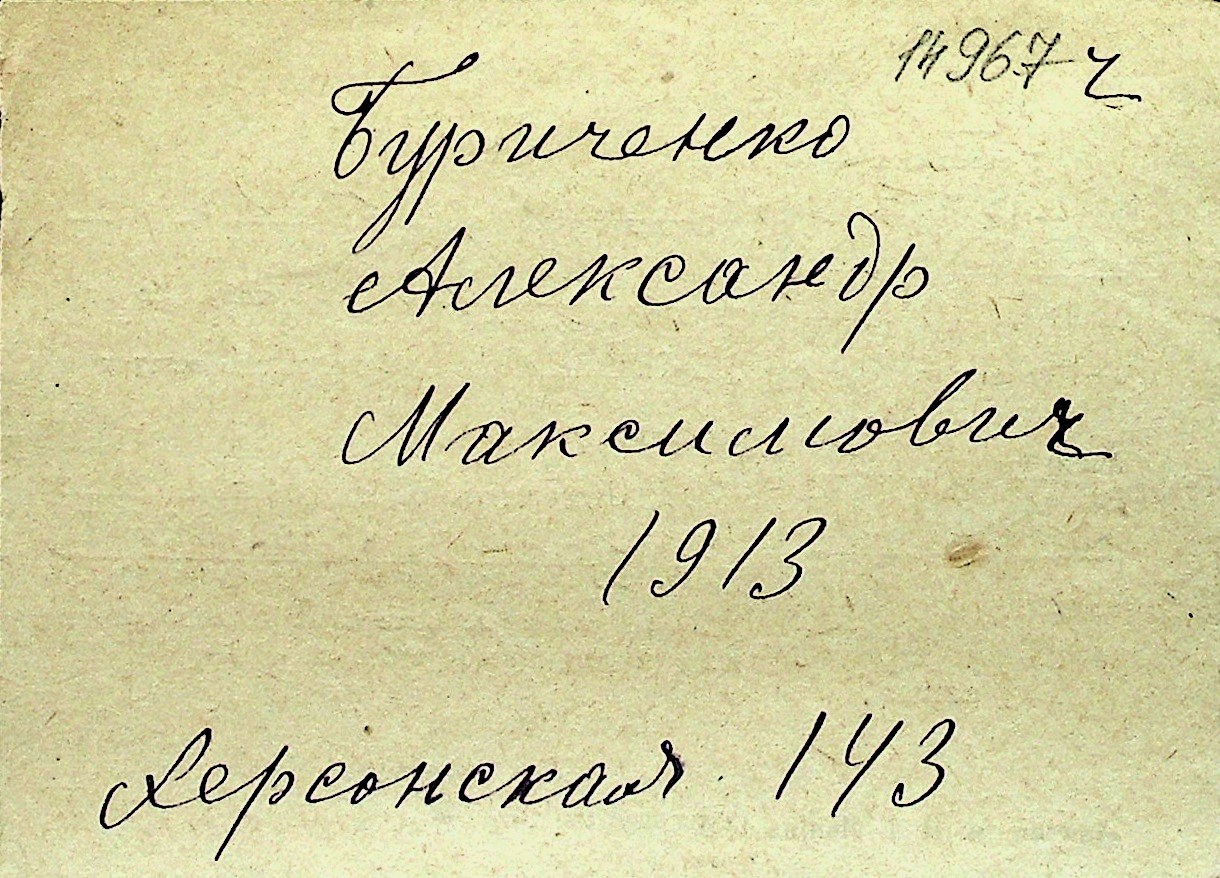 14967 ч
Буриченко
Александр
Максимович
1913
Херсонская 143